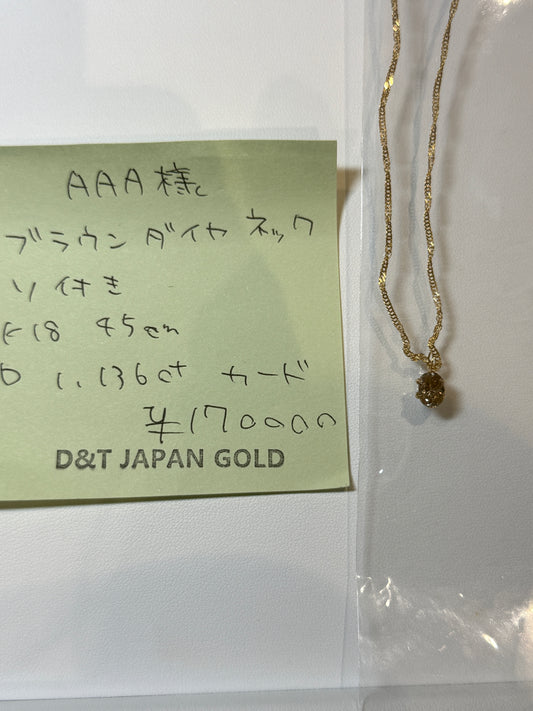 AAA様
ブラウンダイヤ ネック
ソ付き
K18 45cm
D 1.136ct カード
¥170000
D&T JAPAN GOLD